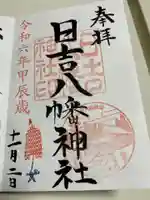 奉拝
日吉八幡神社
令和六年甲辰歳
十一月二日